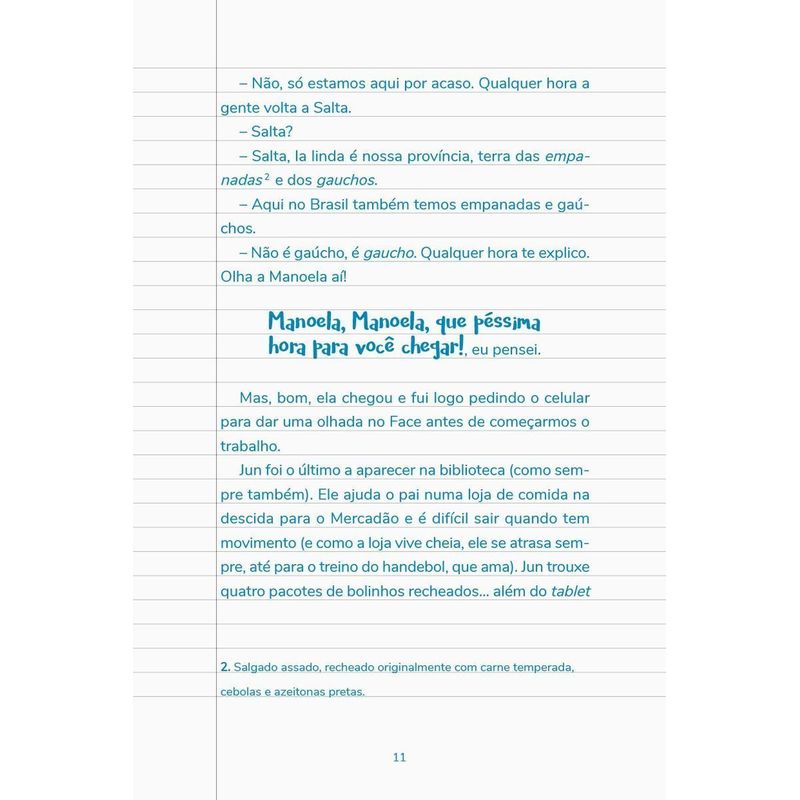 – Não, só estamos aqui por acaso. Qualquer hora a
gente volta a Salta.
– Salta?
– Salta, la linda é nossa província, terra das empa-
nadas² e dos gauchos.
– Aqui no Brasil também temos empanadas e gaú-
chos.
– Não é gaúcho, é gaucho. Qualquer hora te explico.
Olha a Manoela aí!
Manoela, Manoela, que péssima
hora para você chegar!, eu pensei.
Mas, bom, ela chegou e fui logo pedindo o celular
para dar uma olhada no Face antes de começarmos o
trabalho.
Jun foi o último a aparecer na biblioteca (como sem-
pre também). Ele ajuda o pai numa loja de comida na
descida para o Mercadão e é difícil sair quando tem
movimento (e como a loja vive cheia, ele se atrasa sem-
pre, até para o treino do handebol, que ama). Jun trouxe
quatro pacotes de bolinhos recheados... além do tablet
2. Salgado assado, recheado originalmente com carne temperada,
cebolas e azeitonas pretas.
11